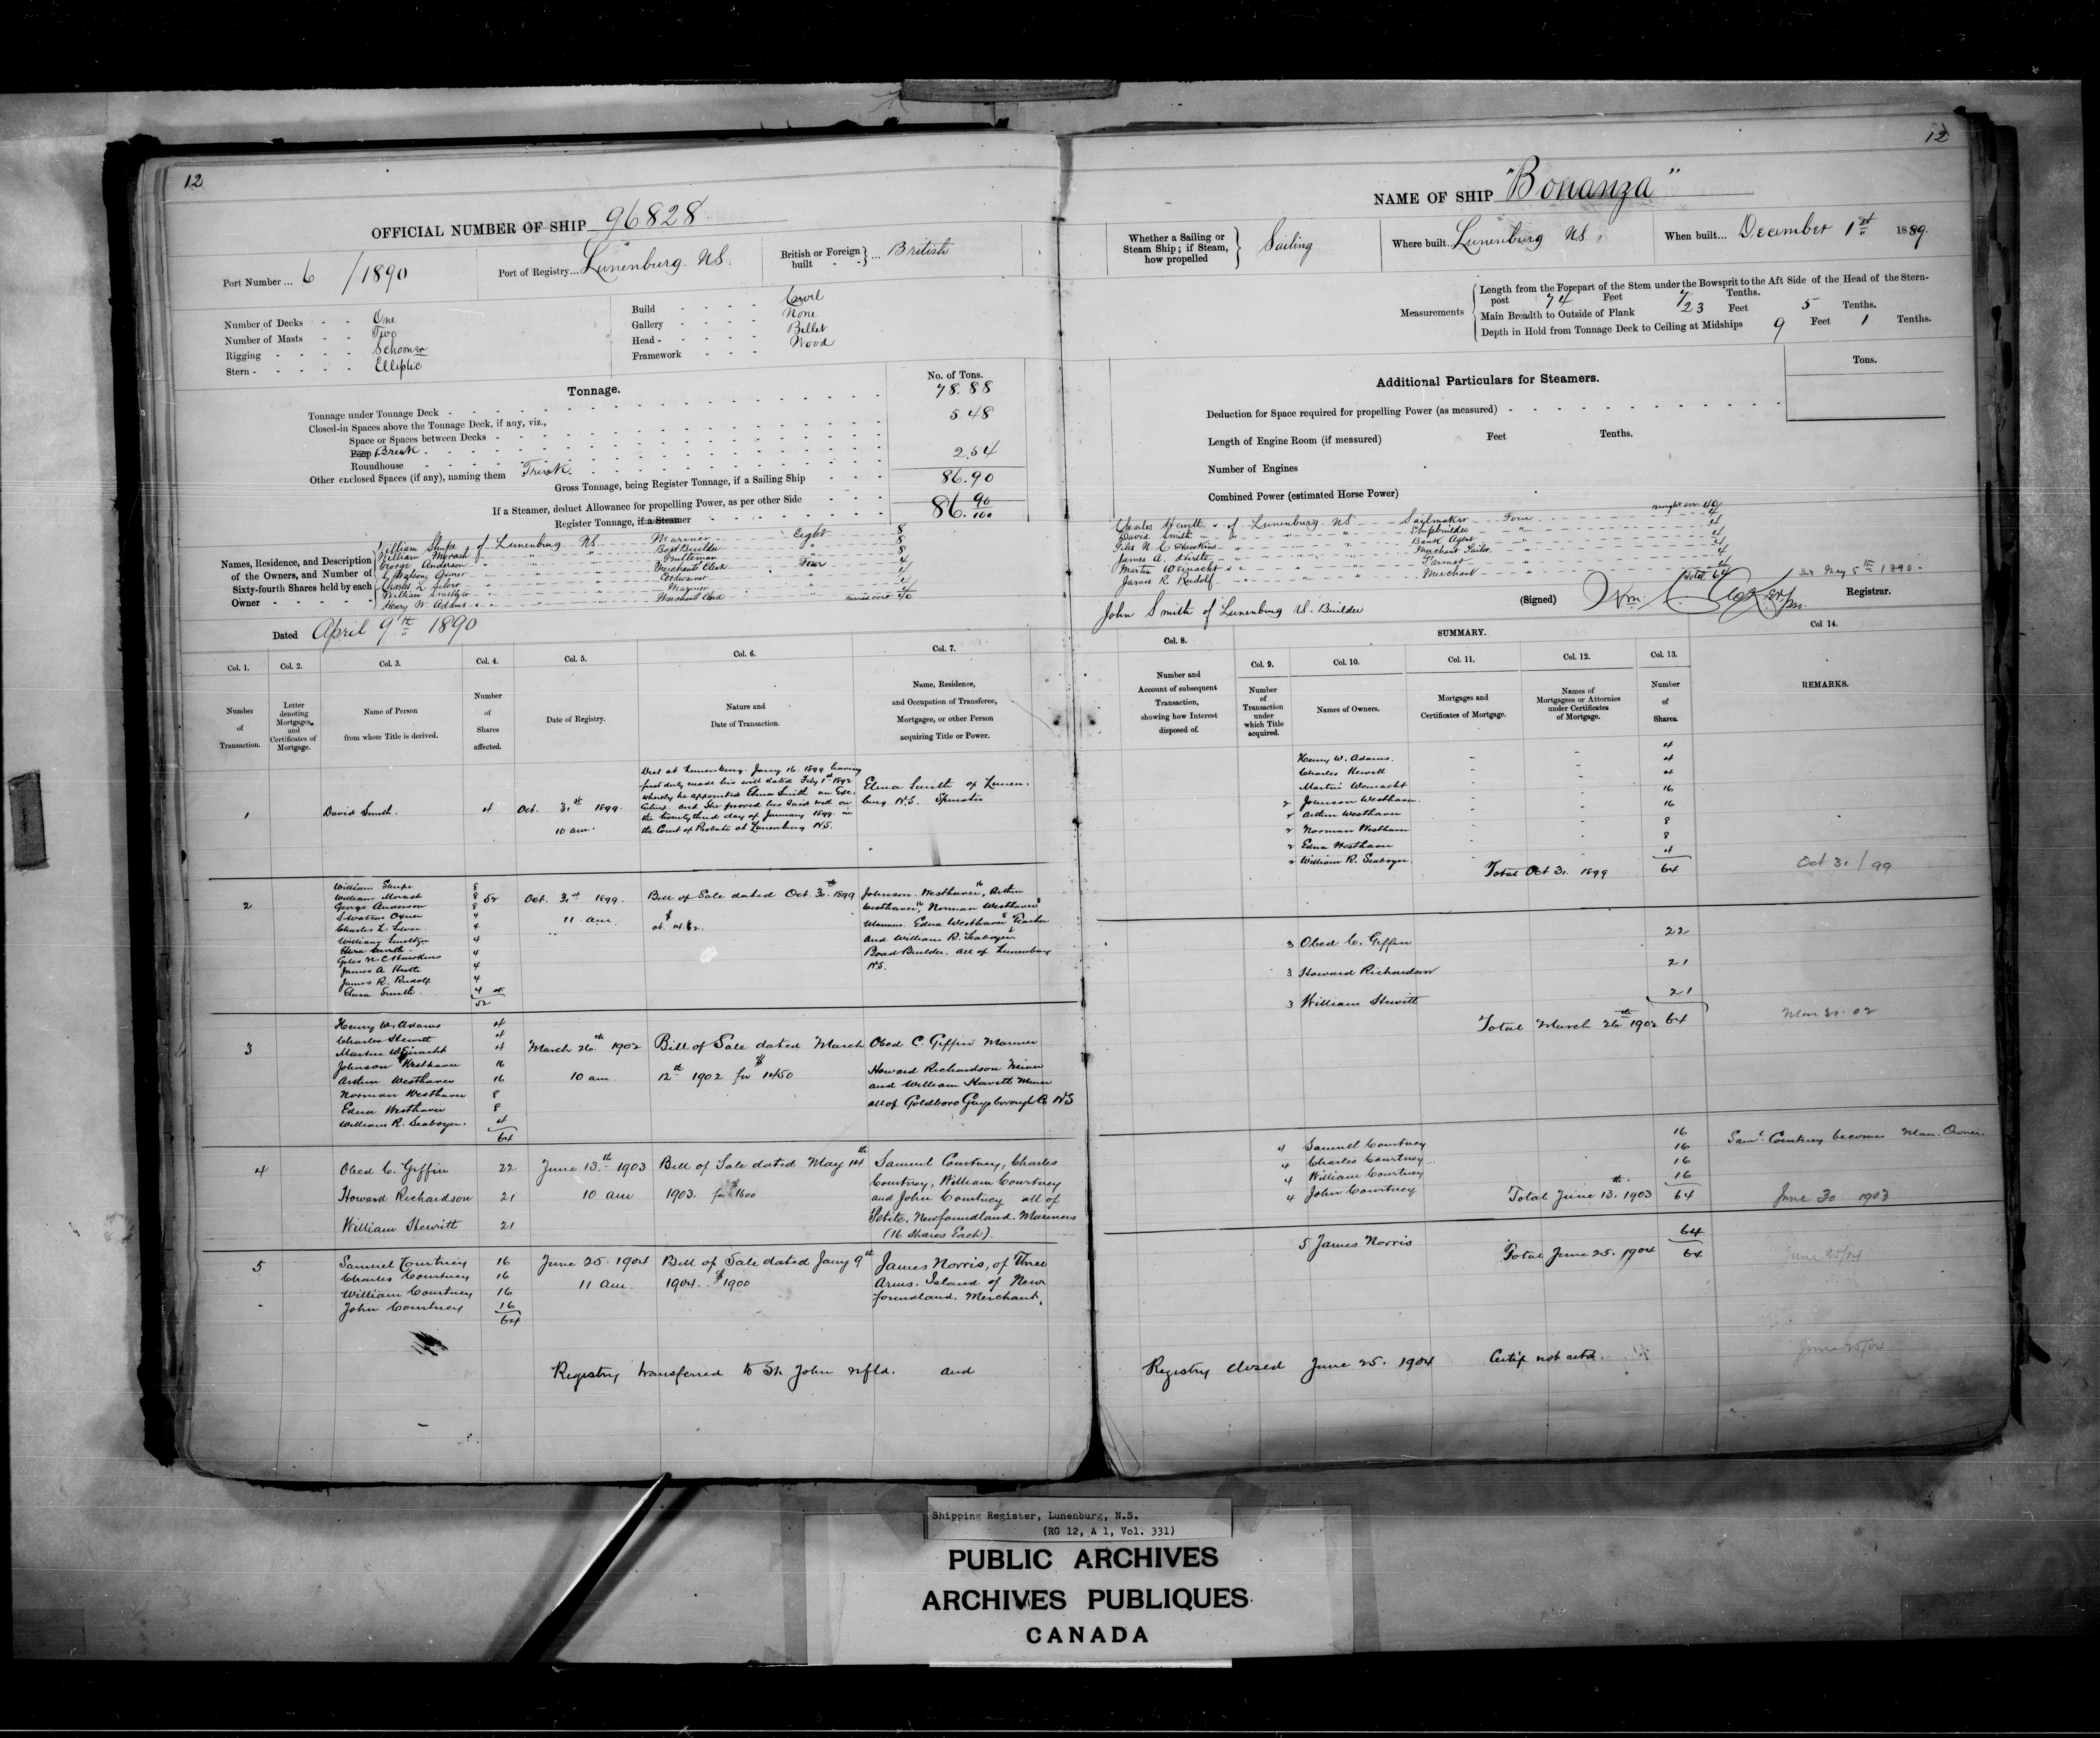 12
OFFICIAL NUMBER OF SHIP 96828
Port Number ... 6 /1890
Port of Registry... Lunenburg. NS.
British or Foreign built } ... British
Number of Decks - - One
Number of Masts - - Two
Rigging - - - - Schooner
Stern - - - - - Elliptic
Build - - - - Carvel
Gallery - - - - None
Head - - - - - Billet
Framework - - - Wood
Tonnage.
No. of Tons.
Tonnage under Tonnage Deck - 78.88
Closed-in Spaces above the Tonnage Deck, if any, viz.,
Space or Spaces between Decks - 5.48
Poop Break
Roundhouse
Other enclosed Spaces (if any), naming them Trunk. 2.54
Gross Tonnage, being Register Tonnage, if a Sailing Ship 86.90
If a Steamer, deduct Allowance for propelling Power, as per other Side
Register Tonnage, if a Steamer 86. 90/100
Names, Residence, and Description of the Owners, and Number of Sixty-fourth Shares held by each Owner
William Shupe of Lunenburg NS Mariner Eight 8
William Morash " " Boat Builder " 8
George Anderson " " Gentleman " 8
S. Watson Oxner " " Merchants Clerk Four 4
Charles L. Silver " " " 4
William Smeltzer " " Mariner " 4
Henry W. Adams " " Merchants Clerk " 4
carried over 40
Dated April 9th 1890
Col. 1. Col. 2. Col. 3. Col. 4. Col. 5. Col. 6. Col. 7.
Number of Transaction.
Letter denoting Mortgages and Certificates of Mortgage.
Name of Person from whom Title is derived.
Number of Shares affected.
Date of Registry.
Nature and Date of Transaction.
Name, Residence, and Occupation of Transferee, Mortgagee, or other Person acquiring Title or Power.
1 David Smith. 4 Oct. 31st 1899. 10 am.
Died at Lunenburg. Jany 16. 1899 leaving
first duly made his will dated Feby 1st 1892
whereby he appointed Elena Smith an Exe-
cutrix. and She proved his said will on
the twenty third day of January 1899. in
the Court of Probate at Lunenburg NS.
Elena Smith of Lunen-
burg. N.S. Spinster
2 William Shupe 8
William Morash 8 52
George Anderson 8
S. Watson Oxner 4
Charles L. Silver 4
William Smeltzer 4
Giles N. C. Hawkins 4
James A. Hirtle 4
James R. Rudolf 4
Elena Smith. 4
52
Oct. 31st 1899. 11 am
Bill of Sale dated Oct. 30th 1899
Johnson Westhaver 16, Arthur
Westhaver 16, Norman Westhaver 8
Mariners. Edna Westhaver 8 Teacher
and William R. Seaboyer 4
Boat Builder. all of Lunenburg
NS.
3 Henry W. Adams 4
Charles Hewitt 4
Martin Weinacht 4
Johnson Westhaver 16
Arthur Westhaver 16
Norman Westhaver 8
Edna Westhaver 8
William R. Seaboyer. 4
64
March 26th 1902 10 am
Bill of Sale dated March
12th 1902 for $1450
Obed C. Giffin Mariner
Howard Richardson Miner
and William Hewitt Miner
all of Goldboro Guysborough Co NS
4 Obed C. Giffin 22
Howard Richardson 21
William Hewitt 21
June 13th 1903 10 am
Bill of Sale dated May 14th
1903. for $1600
Samuel Courtney, Charles
Courtney, William Courtney
and John Courtney all of
Petite, Newfoundland. Mariners
(16 Shares Each).
5 Samuel Courtney 16
Charles Courtney 16
William Courtney 16
John Courtney 16
64
June 25. 1904 11 Am.
Bill of Sale dated Jany 9th
1904. $1900
James Norris, of Three
Arms. Island of New
foundland. Merchant.
Registry transferred to St. John nfld. and
12
NAME OF SHIP "Bonanza"
Whether a Sailing or Steam Ship; if Steam, how propelled } Sailing
Where built.. Lunenburg NS
When built... December 1st 1889.
Measurements
Length from the Forepart of the Stem under the Bowsprit to the Aft Side of the Head of the Stern-
post 74 Feet 7 Tenths.
Main Breadth to Outside of Plank 23 Feet 5 Tenths.
Depth in Hold from Tonnage Deck to Ceiling at Midships 9 Feet 1 Tenths.
Additional Particulars for Steamers.
Tons.
Deduction for Space required for propelling Power (as measured)
Length of Engine Room (if measured) Feet Tenths.
Number of Engines
Combined Power (estimated Horse Power)
Brought over 40
Charles Hewitt of Lunenburg NS Sailmaker Four 4
David Smith " " Shipbuilder " 4
Giles N. C. Hawkins " " Bank Agent " 4
James A. Hirtle " " Merchant Tailor " 4
Martin Weinacht " " Farmer " 4
James R. Rudolf " " Merchant " 4
Total 64
John Smith of Lunenburg NS. Builder
(Signed) Wm. Registrar.
May 5th 1890.
SUMMARY.
Col. 8. Col. 9. Col. 10. Col. 11. Col. 12. Col. 13. Col 14.
Number and Account of subsequent Transaction, showing how Interest disposed of.
Number of Transaction under which Title acquired.
Names of Owners.
Mortgages and Certificates of Mortgage.
Names of Mortgagees or Attornies under Certificates of Mortgage.
Number of Shares.
REMARKS.
Henry W. Adams. 4
Charles Hewitt 4
Martin Weinacht 4
2 Johnson Westhaver. 16
2 Arthur Westhaver 16
2 Norman Westhaver 8
2 Edna Westhaver 8
2 William R. Seaboyer. 4
Total Oct 31. 1899 64
Oct 31/99
3 Obed C. Giffin 22
3 Howard Richardson 21
3 William Hewitt 21
Total March 26th 1902 64
Mar 31. 02
4 Samuel Courtney 16
4 Charles Courtney 16
4 William Courtney 16
4 John Courtney 16
Total June 13th. 1903 64
Saml. Courtney becomes Man. Owner.
June 30 1903
5 James Norris 64
Total June 25. 1904 64
June 25/04
Registry closed June 25. 1904 Certif not
June 25/04
Shipping Register, Lunenburg, N.S.
(RG 12, A 1, Vol. 331)
PUBLIC ARCHIVES
ARCHIVES PUBLIQUES
CANADA